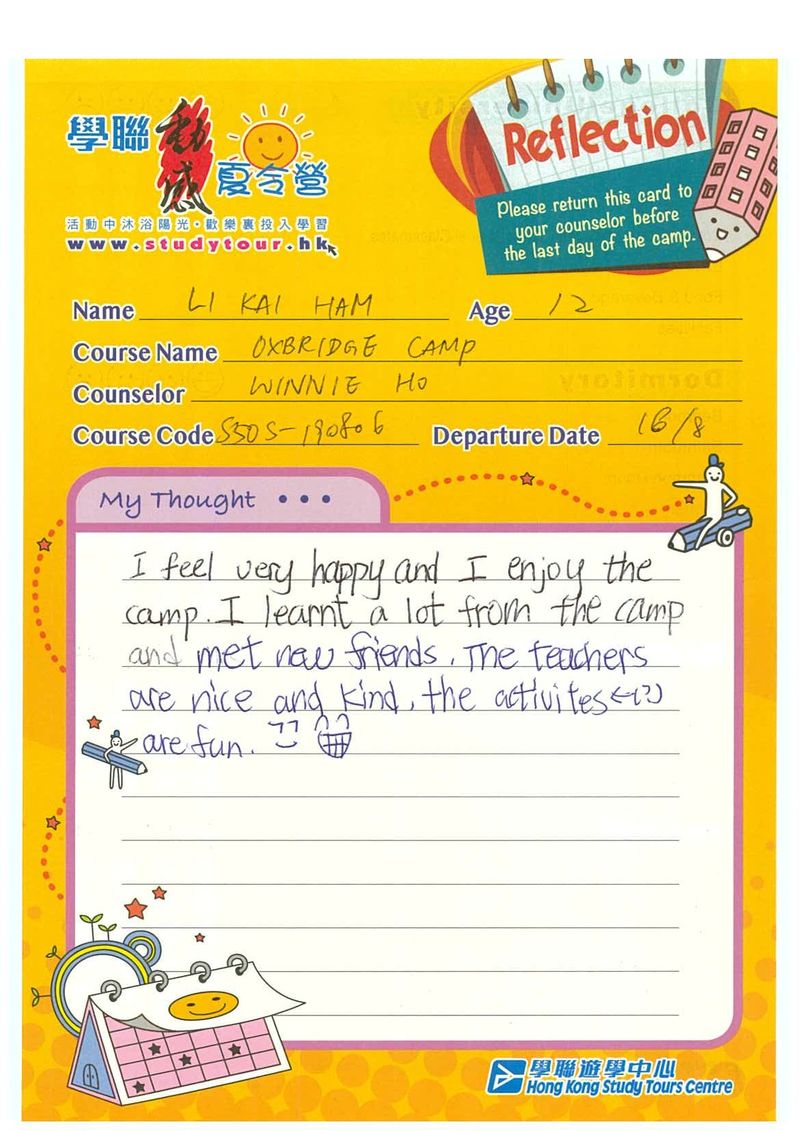 學聯 動感 夏令營
活動中沐浴陽光·歡樂裏投入學習
www.studytour.hk
Reflection
Please return this card to
your counselor before
the last day of the camp.
Name LI KAI HAM Age 12
Course Name OXBRIDGE CAMP
Counselor WINNIE HO
Course Code S50S-190806 Departure Date 16/8
My Thought • • •
I feel very happy and I enjoy the
camp. I learnt a lot from the camp
and met new friends. The teachers
are nice and kind, the activites
are fun.
學聯遊學中心
Hong Kong Study Tours Centre